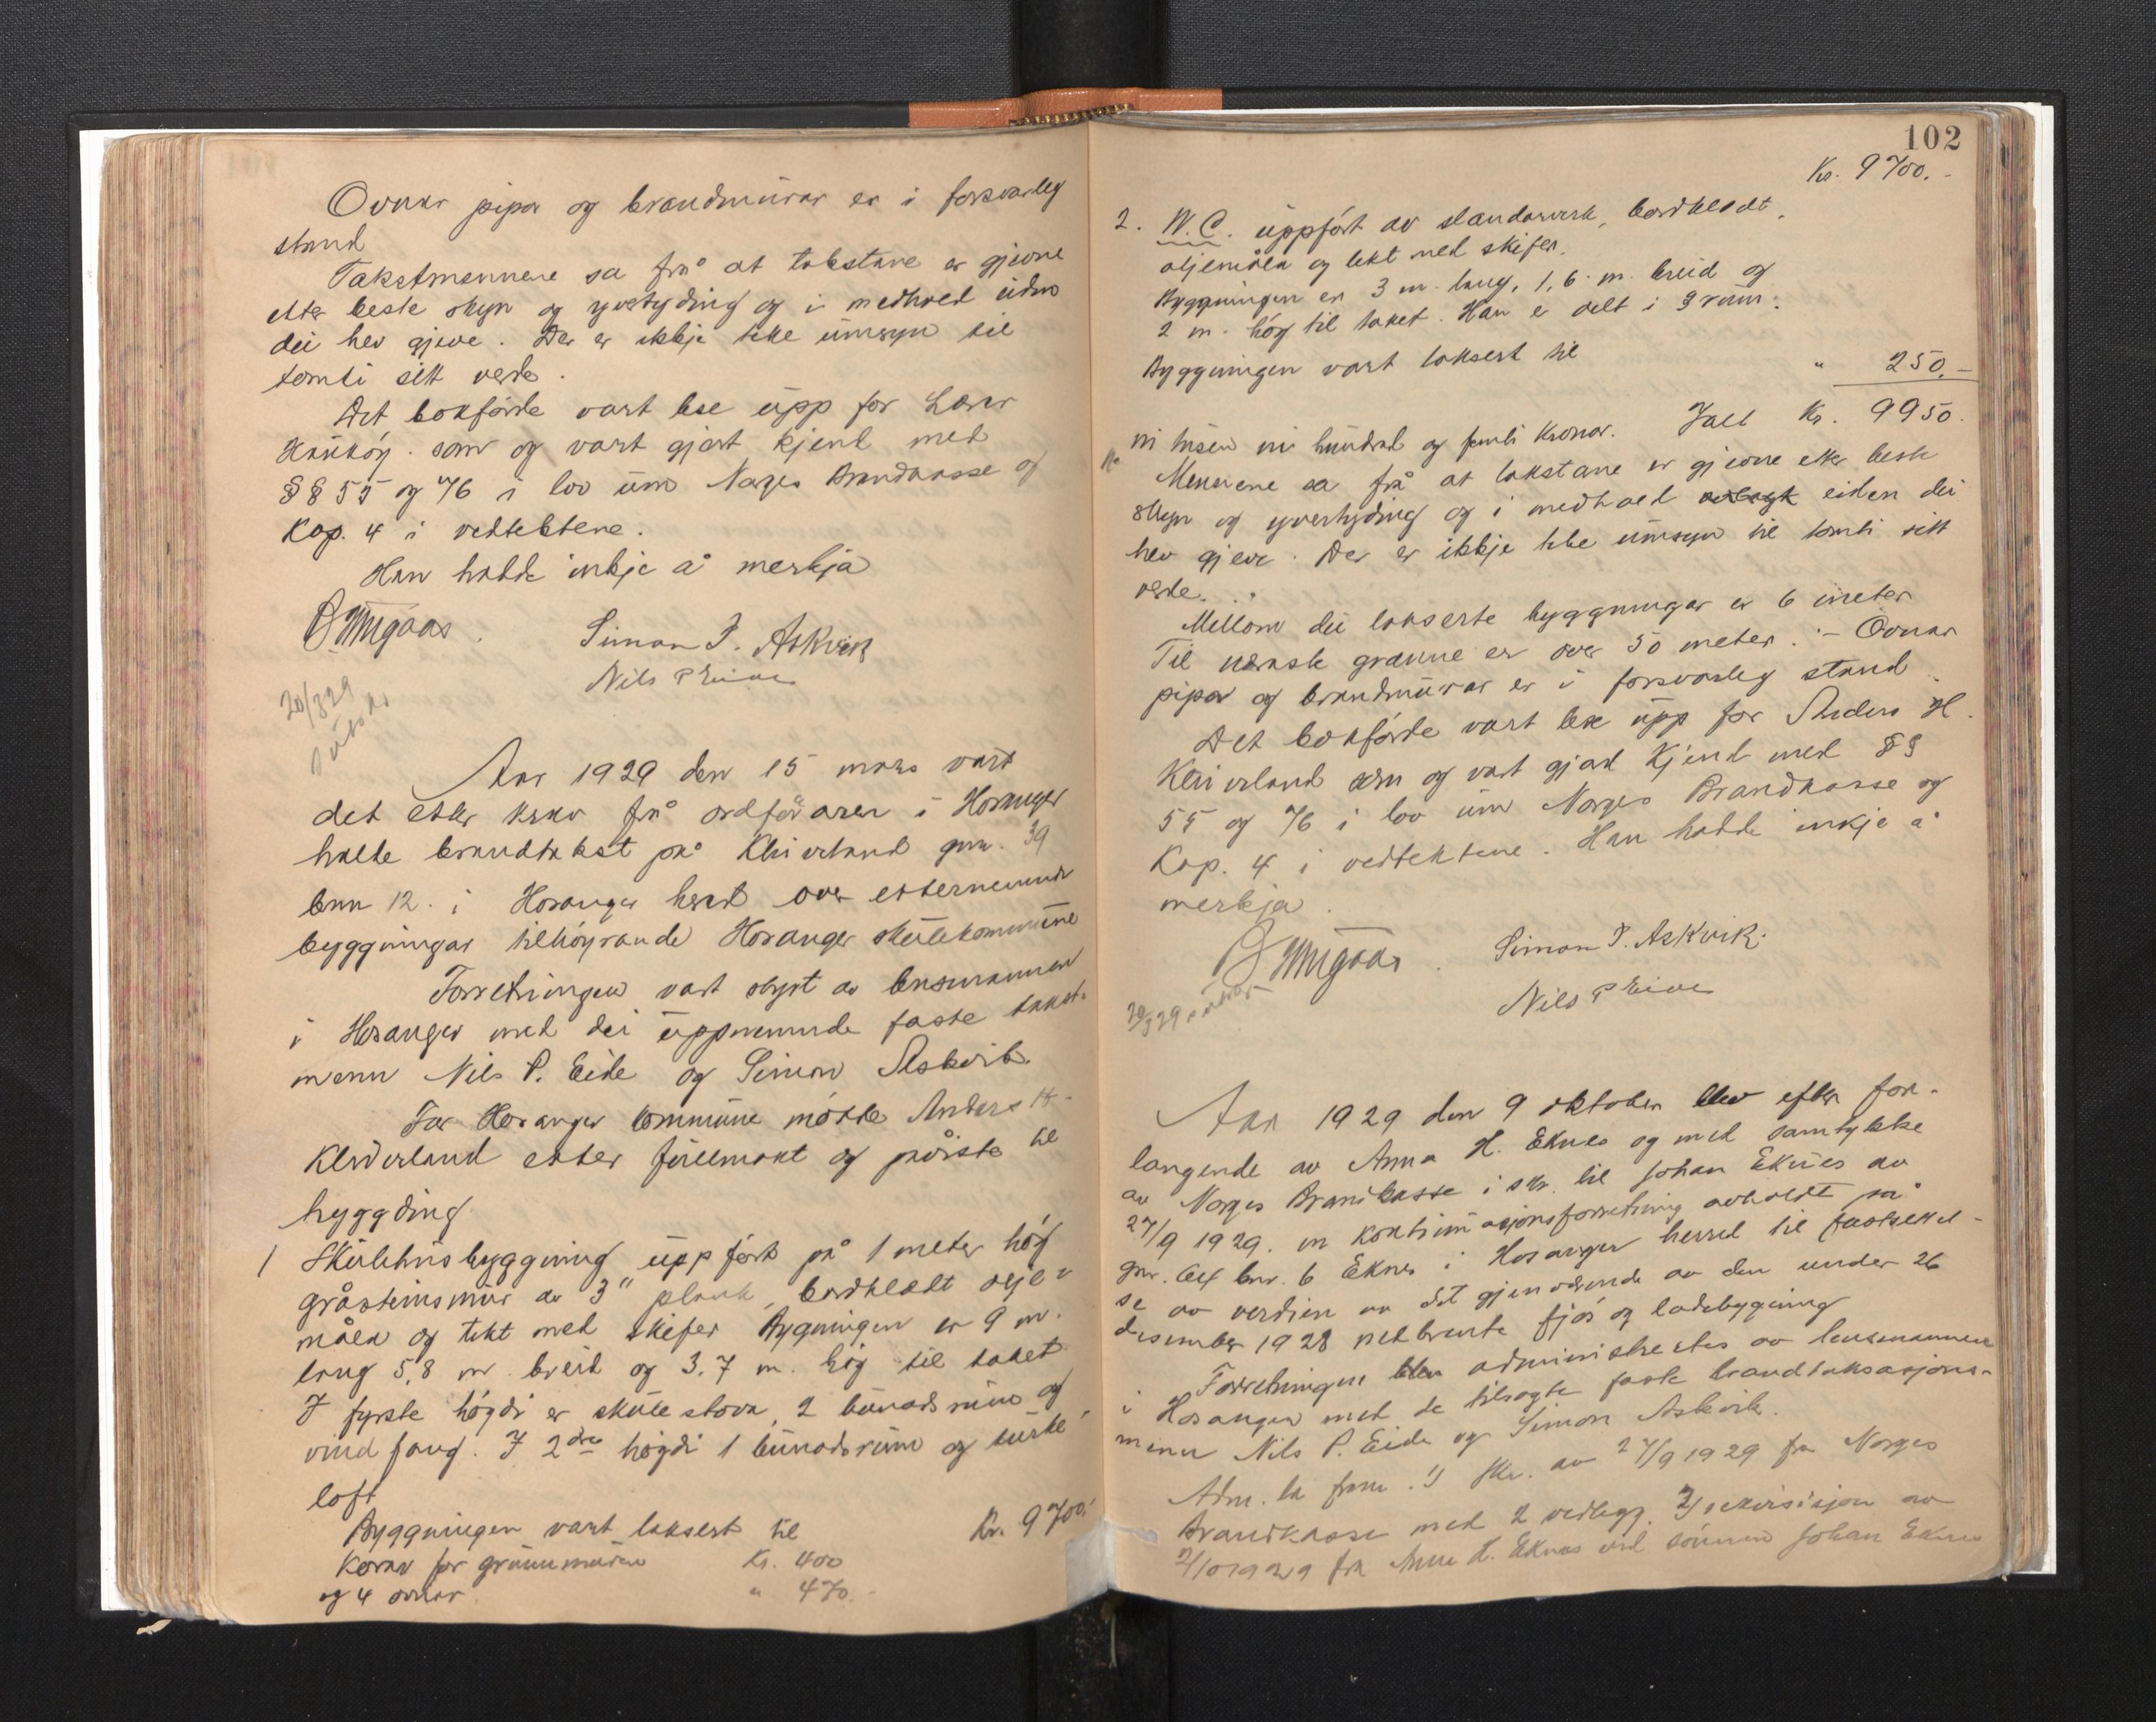 Ovnar pipor og brandmürar er i forsvarleg
stand
Takstmennene sa frå at takstane er gjevne
etter beste skyn og yvertyding og i medhald
dei hev gjeve. Der er ikkje teke ümsyn til
tomti sitt verde.
Det bokførde vart lese üpp for Lærar
som og vart gjort kjend med
§§ 55 og 76 i lov üm Noregs Brandkasse og
Kap. 4 i vedtektene.
Han hadde inkje å merkja
Simon P. Askvik
Nils P Eide
20/3 29
Aar 1929 den 15 mars vart
det etter krav frå ordføraren i Hosanger
halde brandtakst på Kleiverland gnr. 39
bnr 12. i Hosanger herad over etternemnde
byggningar tilhøyrande Hosanger skülekommüne
Forretningen vart styrt av lensmannen
i Hosanger med dei üppnemnde faste takst-
menn Nils P. Eide og Simon Askvik
For Hosanger kommüne møtte Anders H.
Kleiverland etter füllmakt og påviste til
byggding
1 Skülehüsbyggning üppført på 1 meter høg
gråsteinsmür av 3" plank, bordkledt olje-
måla og tekt med skifer Bygningen er 9 m.
lang 5,8 m breid og 3,7 m. høg til taket
I fyrste høgdi er skülestova, 2 bünadsrüm og
vindfang. I 2dre høgdi 1 bünadsrüm og
loft
Byggningen vart taksert til Kr. 9700.
Korav for grünnmüren Kr. 400
og 4 ovnar " 470.-
102
Kr. 9700.-
2. W.C. üppført av standarverk, bordkledt,
oljemåla og tekt med skifer.
Byggningen er 3 m. lang, 1,6 m. breid og
2 m. høg til taket. Han er delt i 3 rüm.
Byggningen vart taksert til " 250.-
Ialt Kr. 9950.
ni tüsen ni hündrad og femti kronor.
Mennene sa frå at takstane er gjevne etter beste
skyn og yvertyding og i medhald eiden dei
hev gjeve. Der er ikkje teke ümsyn til tomti sitt
verde.
Millom dei takserte byggningar er 6 meter
Til næraste granne er over 50 meter. - Ovnar
pipor og brandmürar er i forsvarleg stand
Det bokførde vart lese üpp for Anders H.
Kleiverland som og vart gjort kjend med §§
55 og 76 i lov üm Norges Brandkasse og
Kap. 4 i vedtektene. Han hadde inkje å
merkja.
Simon P. Askvik.
Nils P Eide
20/3 29
Aar 1929 den 9 oktober blev efter for-
langende av Anna H. Eknes og med samtykke
av Norges Brandkasse i skr. til Johan Eknes av
27/9 1929. en kontinuasjonsforretning avholdt på
gnr. 64 bnr. 6 Eknes i Hosanger herred til fastsettel-
se av verdien av det gjenværende av den under 26
desember 1928 nedbrente fjøs og ladebygning
Forretningen blev administrertes av lensmannen
i Hosanger med de tilsagte faste brandtaksasjons-
menn Nils P. Eide og Simon Askvik.
Adm. la frem. 1) Skr. av 27/9 1929 fra Norges
Brandkasse med 2 vedlegg. 2) rekvisisjon av
2/10 1929 fra Anna H. Eknes ved sønnen Johan Eknes